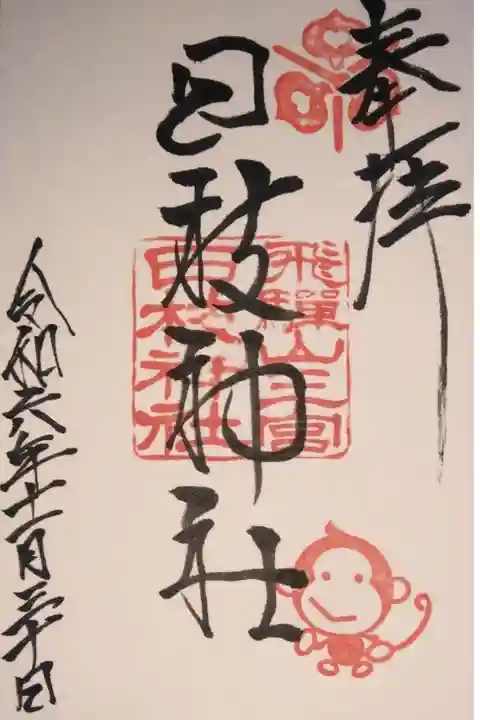 奉拝
飛驒山王宮
日枝神社
日枝神社
令和六年十一月三十日